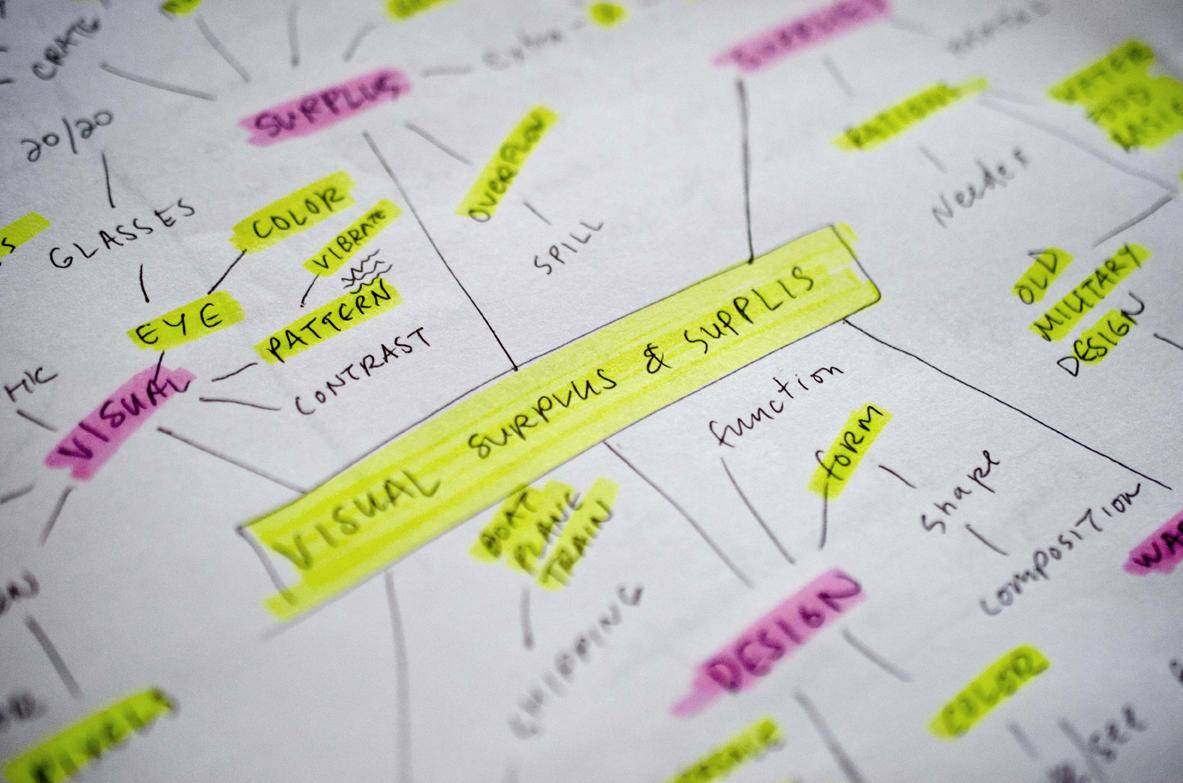 CRATE
SURPLUS
20/20
OVERFLOW
RATIONS
WATER
NEEDED
GLASSES
COLOR
VIBRATE
SPILL
EYE
PATTERN
CONTRAST
OLD
MILITARY
DESIGN
VISUAL
VISUAL SURPLUS & SUPPLIS
function
form
BOAT
PLANE
TRAIN
Shape
COMPOSITION
SHIPPING
DESIGN
COLOR
PIXELS